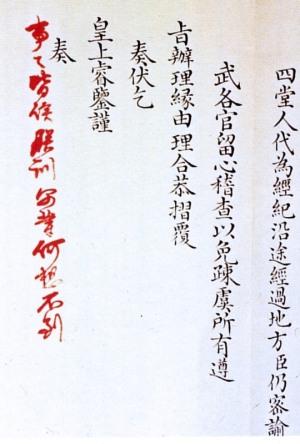 四堂人代為經紀沿途經過地方臣仍密諭
武各官留心稽查以免疎虞所有遵
旨辦理緣由理合恭摺覆
奏伏乞
皇上睿鑒謹
奏
事々皆候朕訓何想不到